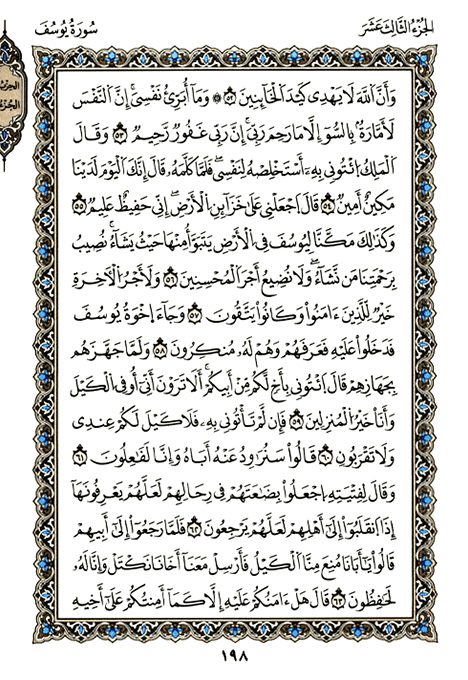 الجُزْءُ الثَّالِثَ عَشَرَ
سُورَةُ يُوسُفَ
الحِزْبُ
الجُزْءُ
وَأَنَّ ٱللَّهَ لَا يَهْدِى كَيْدَ ٱلْخَآئِنِينَ ٥٢ ۞ وَمَآ أُبَرِّئُ نَفْسِىٓ ۚ إِنَّ ٱلنَّفْسَ
لَأَمَّارَةٌۢ بِٱلسُّوٓءِ إِلَّا مَا رَحِمَ رَبِّىٓ ۚ إِنَّ رَبِّى غَفُورٌ رَّحِيمٌ ٥٣ وَقَالَ
ٱلْمَلِكُ ٱئْتُونِى بِهِۦٓ أَسْتَخْلِصْهُ لِنَفْسِى ۖ فَلَمَّا كَلَّمَهُۥ قَالَ إِنَّكَ ٱلْيَوْمَ لَدَيْنَا
مَكِينٌ أَمِينٌ ٥٤ قَالَ ٱجْعَلْنِى عَلَىٰ خَزَآئِنِ ٱلْأَرْضِ ۖ إِنِّى حَفِيظٌ عَلِيمٌ ٥٥
وَكَذَٰلِكَ مَكَّنَّا لِيُوسُفَ فِى ٱلْأَرْضِ يَتَبَوَّأُ مِنْهَا حَيْثُ يَشَآءُ ۚ نُصِيبُ
بِرَحْمَتِنَا مَن نَّشَآءُ ۖ وَلَا نُضِيعُ أَجْرَ ٱلْمُحْسِنِينَ ٥٦ وَلَأَجْرُ ٱلْـَٔاخِرَةِ
خَيْرٌ لِّلَّذِينَ ءَامَنُوا۟ وَكَانُوا۟ يَتَّقُونَ ٥٧ وَجَآءَ إِخْوَةُ يُوسُفَ
فَدَخَلُوا۟ عَلَيْهِ فَعَرَفَهُمْ وَهُمْ لَهُۥ مُنكِرُونَ ٥٨ وَلَمَّا جَهَّزَهُم
بِجَهَازِهِمْ قَالَ ٱئْتُونِى بِأَخٍ لَّكُم مِّنْ أَبِيكُمْ ۚ أَلَا تَرَوْنَ أَنِّىٓ أُوفِى ٱلْكَيْلَ
وَأَنَا۠ خَيْرُ ٱلْمُنزِلِينَ ٥٩ فَإِن لَّمْ تَأْتُونِى بِهِۦ فَلَا كَيْلَ لَكُمْ عِندِى
وَلَا تَقْرَبُونِ ٦٠ قَالُوا۟ سَنُرَٰوِدُ عَنْهُ أَبَاهُ وَإِنَّا لَفَٰعِلُونَ ٦١
وَقَالَ لِفِتْيَٰنِهِ ٱجْعَلُوا۟ بِضَٰعَتَهُمْ فِى رِحَالِهِمْ لَعَلَّهُمْ يَعْرِفُونَهَآ
إِذَا ٱنقَلَبُوٓا۟ إِلَىٰٓ أَهْلِهِمْ لَعَلَّهُمْ يَرْجِعُونَ ٦٢ فَلَمَّا رَجَعُوٓا۟ إِلَىٰٓ أَبِيهِمْ
قَالُوا۟ يَٰٓأَبَانَا مُنِعَ مِنَّا ٱلْكَيْلُ فَأَرْسِلْ مَعَنَآ أَخَانَا نَكْتَلْ وَإِنَّا لَهُۥ
لَحَٰفِظُونَ ٦٣ قَالَ هَلْ ءَامَنُكُمْ عَلَيْهِ إِلَّا كَمَآ أَمِنتُكُمْ عَلَىٰٓ أَخِيهِ
١٩٨